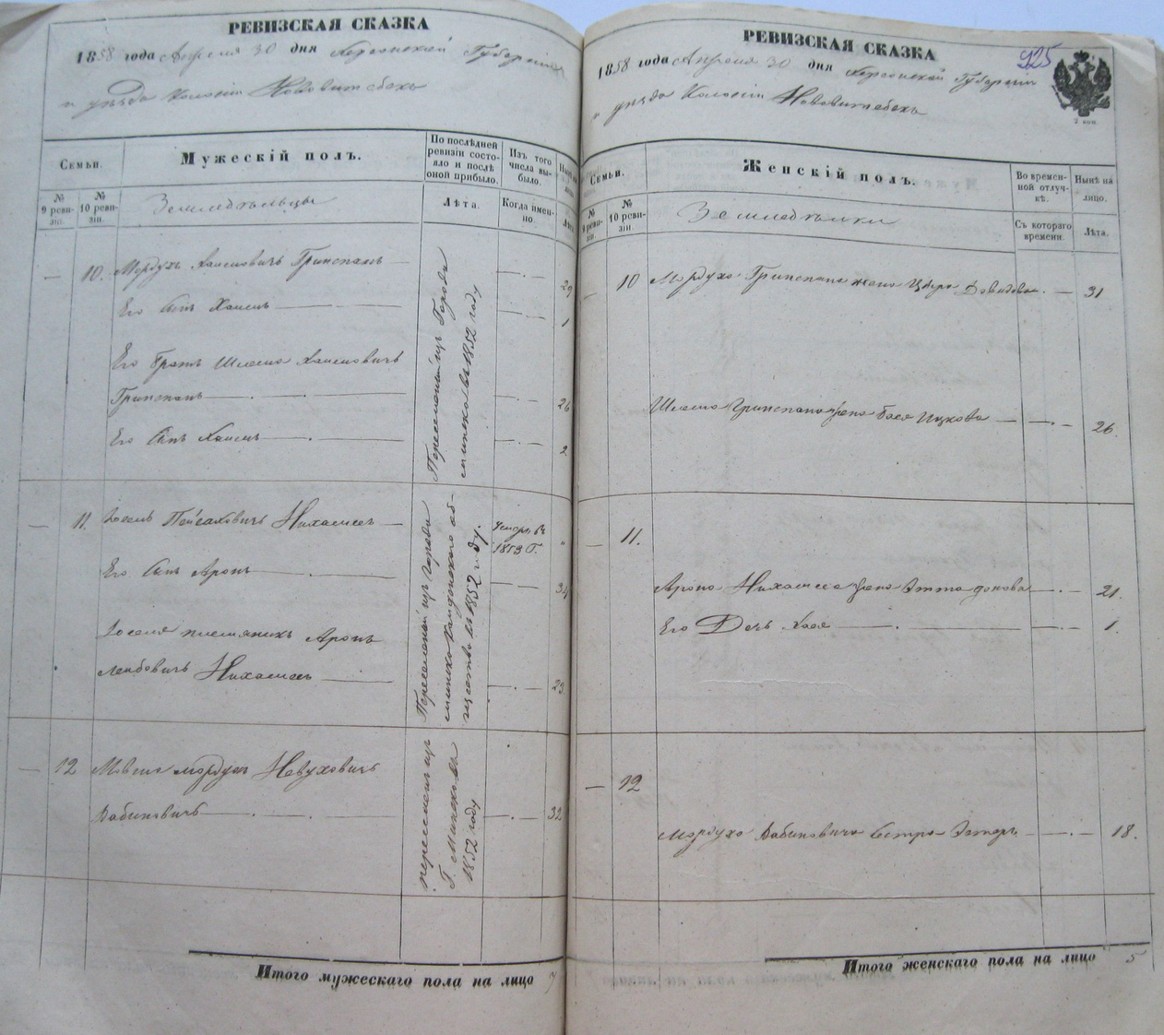 РЕВИЗСКАЯ СКАЗКА
1858 года Апреля 30 дня Херсонской Губернии
и уезда Колонии Нововитебск
Семьи.
Мужескій полъ.
По послѣдней ревизіи состояло и послѣ оной прибыло.
Изъ того числа выбыло.
№ 9 ревизіи.
№ 10 ревизіи.
Земледѣльцы
Лѣта.
Когда именно.
— 10. Мордухъ Хаимовичъ Гринспанъ — 29
Его сынъ Хаимъ — 1
Его братъ Шлема Хаимовичъ
Гринспанъ — 26
Его сынъ Хаимъ — 2
Переселенъ изъ Города
Минска въ 1852 году
— 11. Іосель Пейсаховичъ
1853 Г.
Его сынъ Аронъ — 34
Іоселя племянникъ Аронъ
Лейбовичъ — 23
Переселенъ изъ Города
Минско общество въ 1852 году.
— 12 Мордухъ
Рабиновичъ — 32
переселенъ изъ
Г. Минска въ
1852 году
Итого мужескаго пола на лицо 7
РЕВИЗСКАЯ СКАЗКА
925
1858 года Апреля 30 дня Херсонской Губерніи
и уезда Колоніи Нововитебскъ
2 коп.
Семьи.
Женскій полъ.
Во временной отлучкѣ.
Нынѣ на лицо.
№ 9 ревизіи.
№ 10 ревизіи.
Земледѣлки
Съ котораго времени.
Лѣта.
— 10 Мордуха Гринспана жена Давидова — 31
Шлема Гринспана жена Бася Ицкова — 26.
— 11.
Арона жена Этта — 21.
Его Дочь Хая — 1.
— 12
Мордуха Рабиновича сестра Эстеръ — 18.
Итого женскаго пола на лицо 5